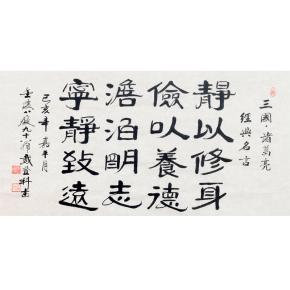 三國·諸葛亮
經典名言
靜以修身
儉以養德
澹泊眀志
寧靜致遠
己亥年嘉平月
九十